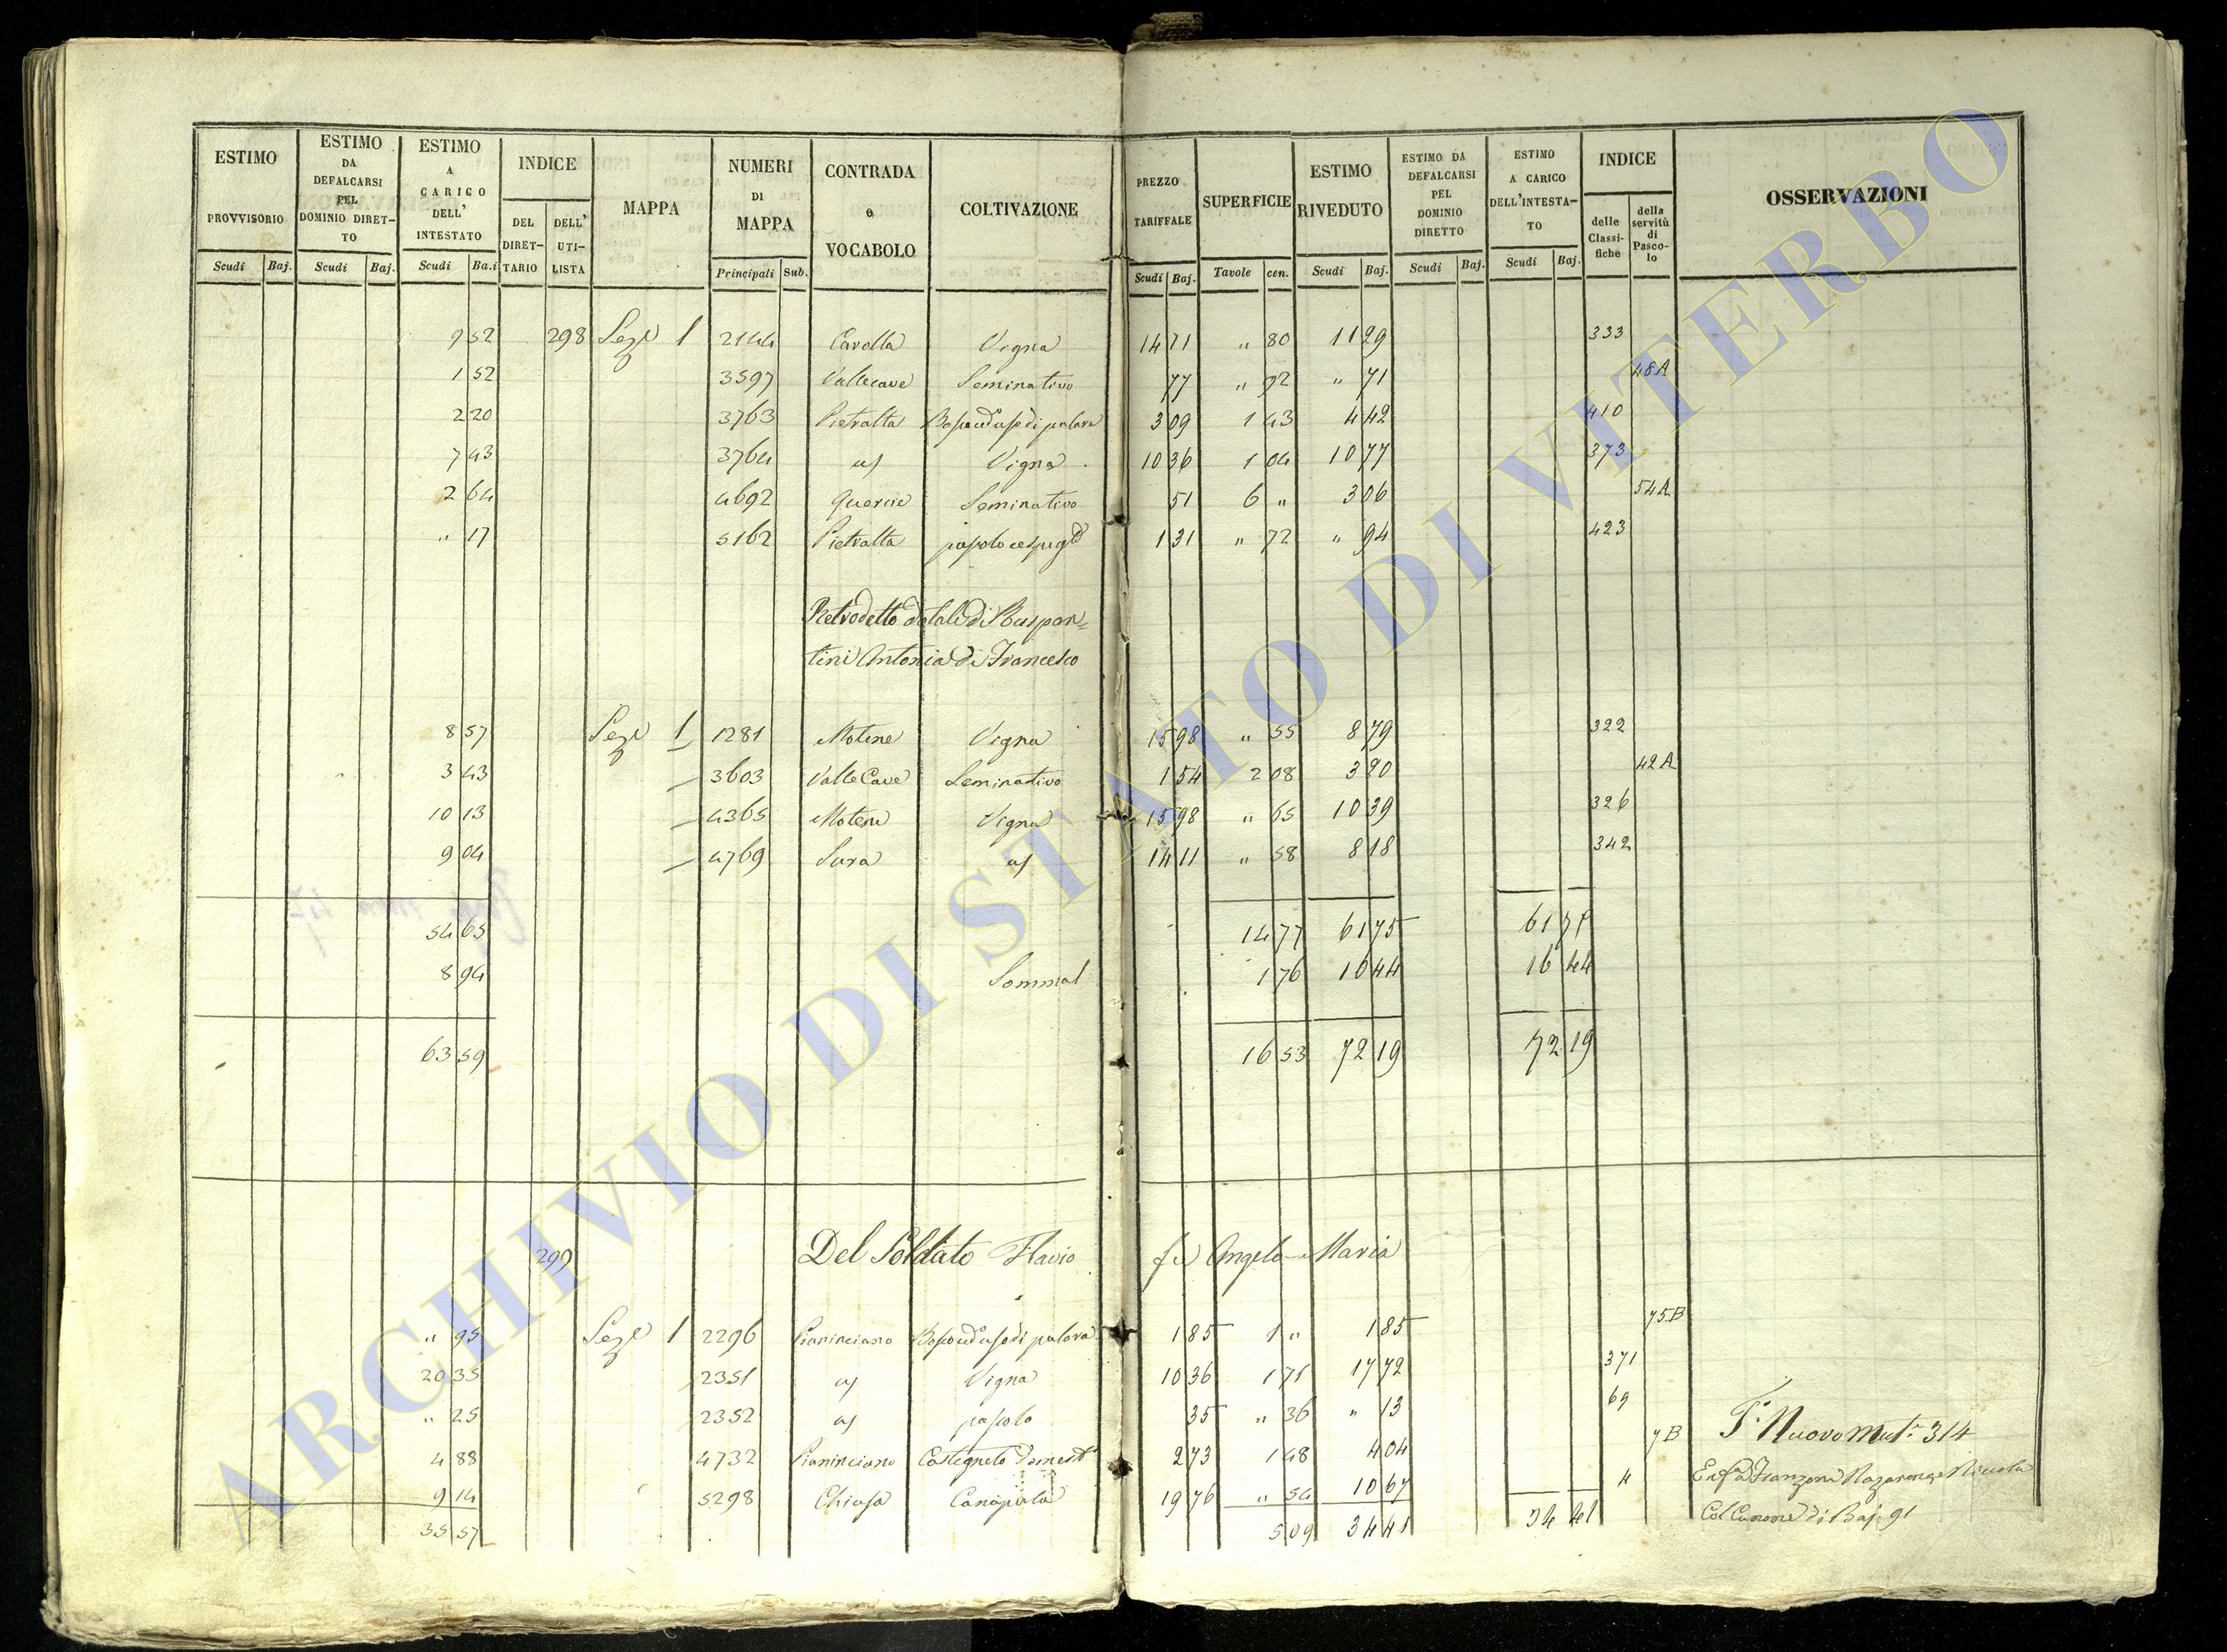 ESTIMO PROVVISORIO Scudi Baj.
ESTIMO DA DEFALCARSI PEL DOMINIO DIRET-TO Scudi Baj.
ESTIMO A CARICO DELL' INTESTATO Scudi Ba.i
INDICE DEL DIRET-TARIO DELL' UTI-LISTA
MAPPA
NUMERI DI MAPPA Principali Sub.
CONTRADA e VOCABOLO
COLTIVAZIONE
PREZZO TARIFFALE Scudi Baj.
SUPERFICIE Tavole cen.
ESTIMO RIVEDUTO Scudi Baj.
ESTIMO DA DEFALCARSI PEL DOMINIO DIRETTO Scudi Baj.
ESTIMO A CARICO DELL'INTESTA-TO Scudi Baj.
INDICE delle Classi-fiche della servitù di Pasco-lo
OSSERVAZIONI
9 52 298 Sez.e 1 2144 Cavolla Vigna 14 11 " 80 11 29 333
1 52 3597 Vallecave Seminativo 77 " 92 " 71 48A
2 20 3763 Pietralta 3 09 1 43 4 42 410
7 43 3764 aſ Vigna 10 36 1 04 10 77 373
2 64 4692 Quercie Seminativo 51 6 " 3 06 54A
" 17 5162 Pietralta 1 31 " 72 " 94 423
Retrodetto
Antonia di Francesco
8 57 Sez.e 1 1281 Motene Vigna 15 98 " 55 8 79 322
3 43 3603 Valle Cave Seminativo 1 54 2 08 3 20 42A
10 13 4365 Motene Vigna 15 98 " 65 10 39 326
9 04 4769 Sura aſ 14 11 " 58 8 18 342
54 65 14 77 61 75 61 75
8 94 1 76 10 44 10 44
63 59 16 53 72 19 72 19
299 Del Soldato Flavio fu Angelo Maria
" 95 Sez.e 1 2296 Pianinciano 1 85 1 " 1 85 75B
20 35 2351 aſ Vigna 10 36 1 71 17 72 371
" 25 2352 aſ pascolo 35 " 36 " 13 69
4 88 4732 Pianinciano Castagneto domest. 2 73 1 48 4 04 7B
9 14 5298 Chiusa Canapula 19 76 " 54 10 67 4
35 57 5 09 34 41 34 41
Nuovo Mut. 314
Col Canone di Baj. 91
ARCHIVIO DI STATO DI VITERBO